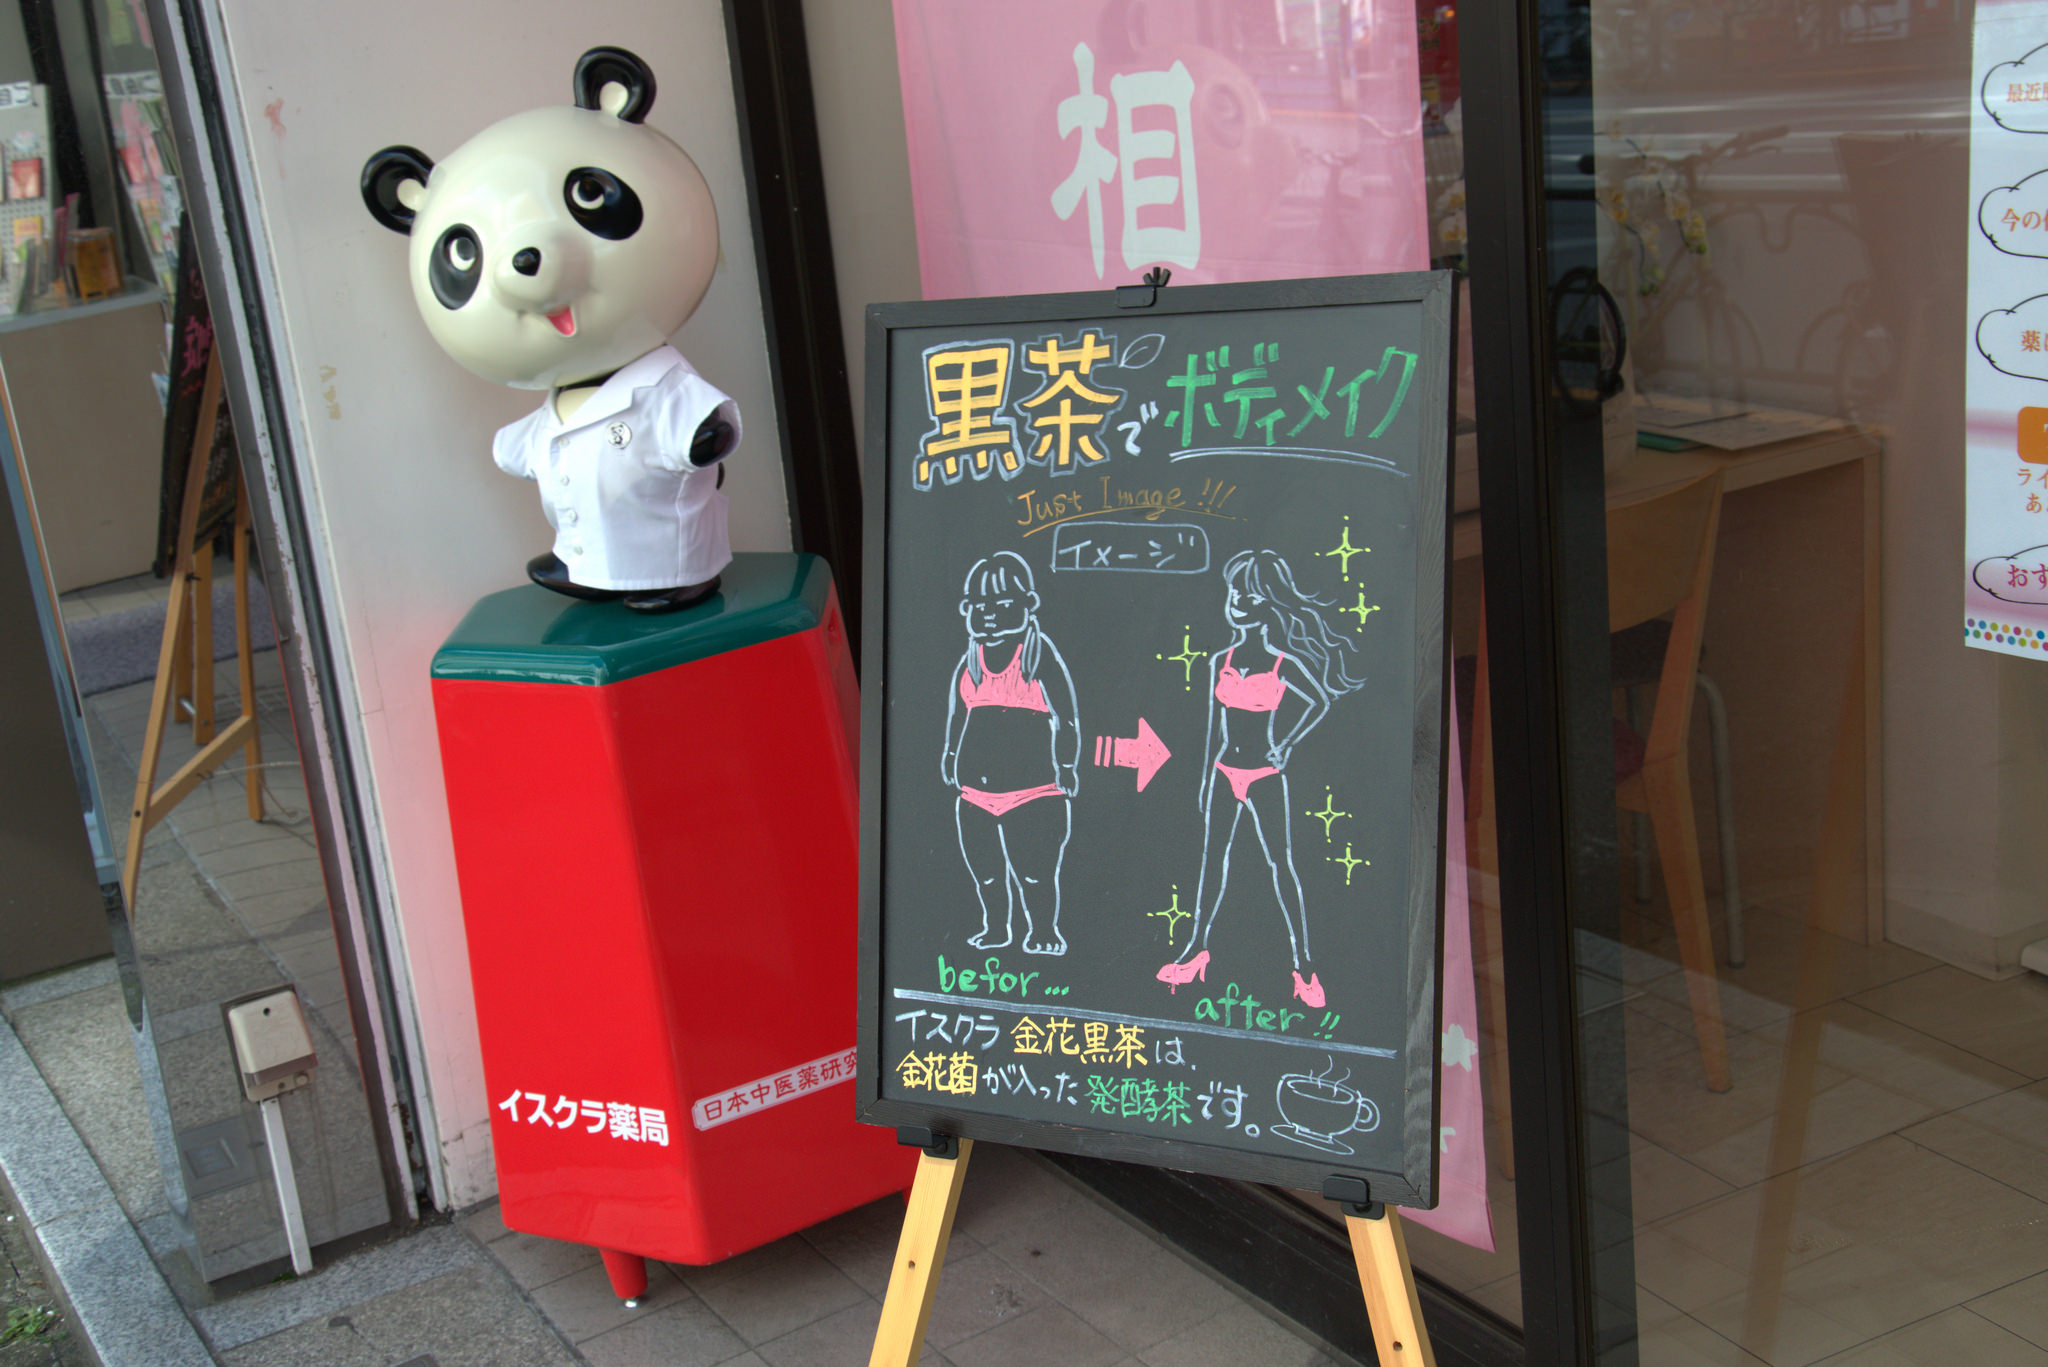 相
黒茶でボディメイク
Just Image!!!
イメージ
befor...
after!!
イスクラ 金花黒茶は、
金花菌が入った発酵茶です。
イスクラ薬局
日本中医薬研究
最近
今の
薬
ライ
あ
おす